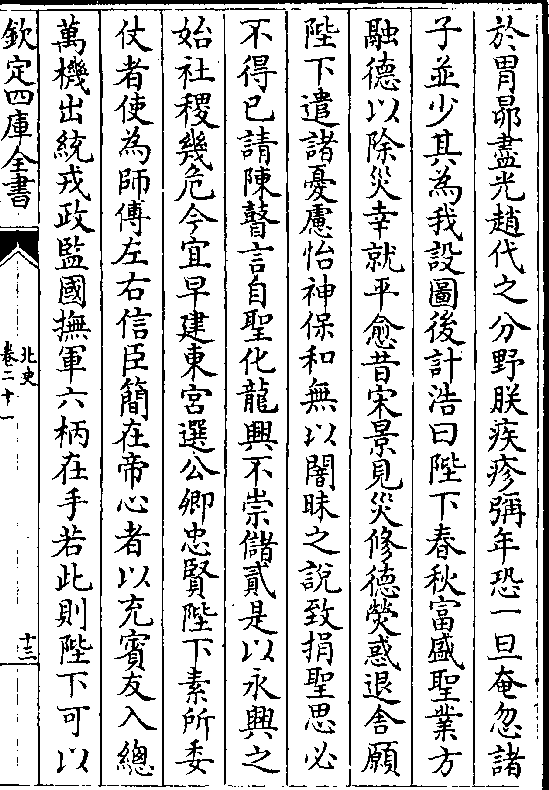 於胃昴盡光趙代之分野朕疾疹彌年恐一旦奄忽諸
子並少其為我設圖後計浩曰陛下春秋富盛聖業方
融德以除災幸就平愈昔宋景見災修德熒惑退舍願
陛下遣諸憂慮怡神保和無以闇昧之說致捐聖思必
不得已請陳瞽言自聖化龍興不崇儲貳是以永興之
始社稷幾危今宜早建東宮選公卿忠賢陛下素所委
仗者使為師傅左右信臣簡在帝心者以充賓友入總
萬機出統戎政監國撫軍六柄在手若此則陛下可以
欽定四庫全書
北史
卷二十一
十三